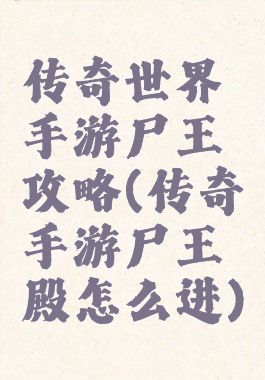 传奇世界
手游尸王
攻略(传奇
手游尸王
殿怎么进)